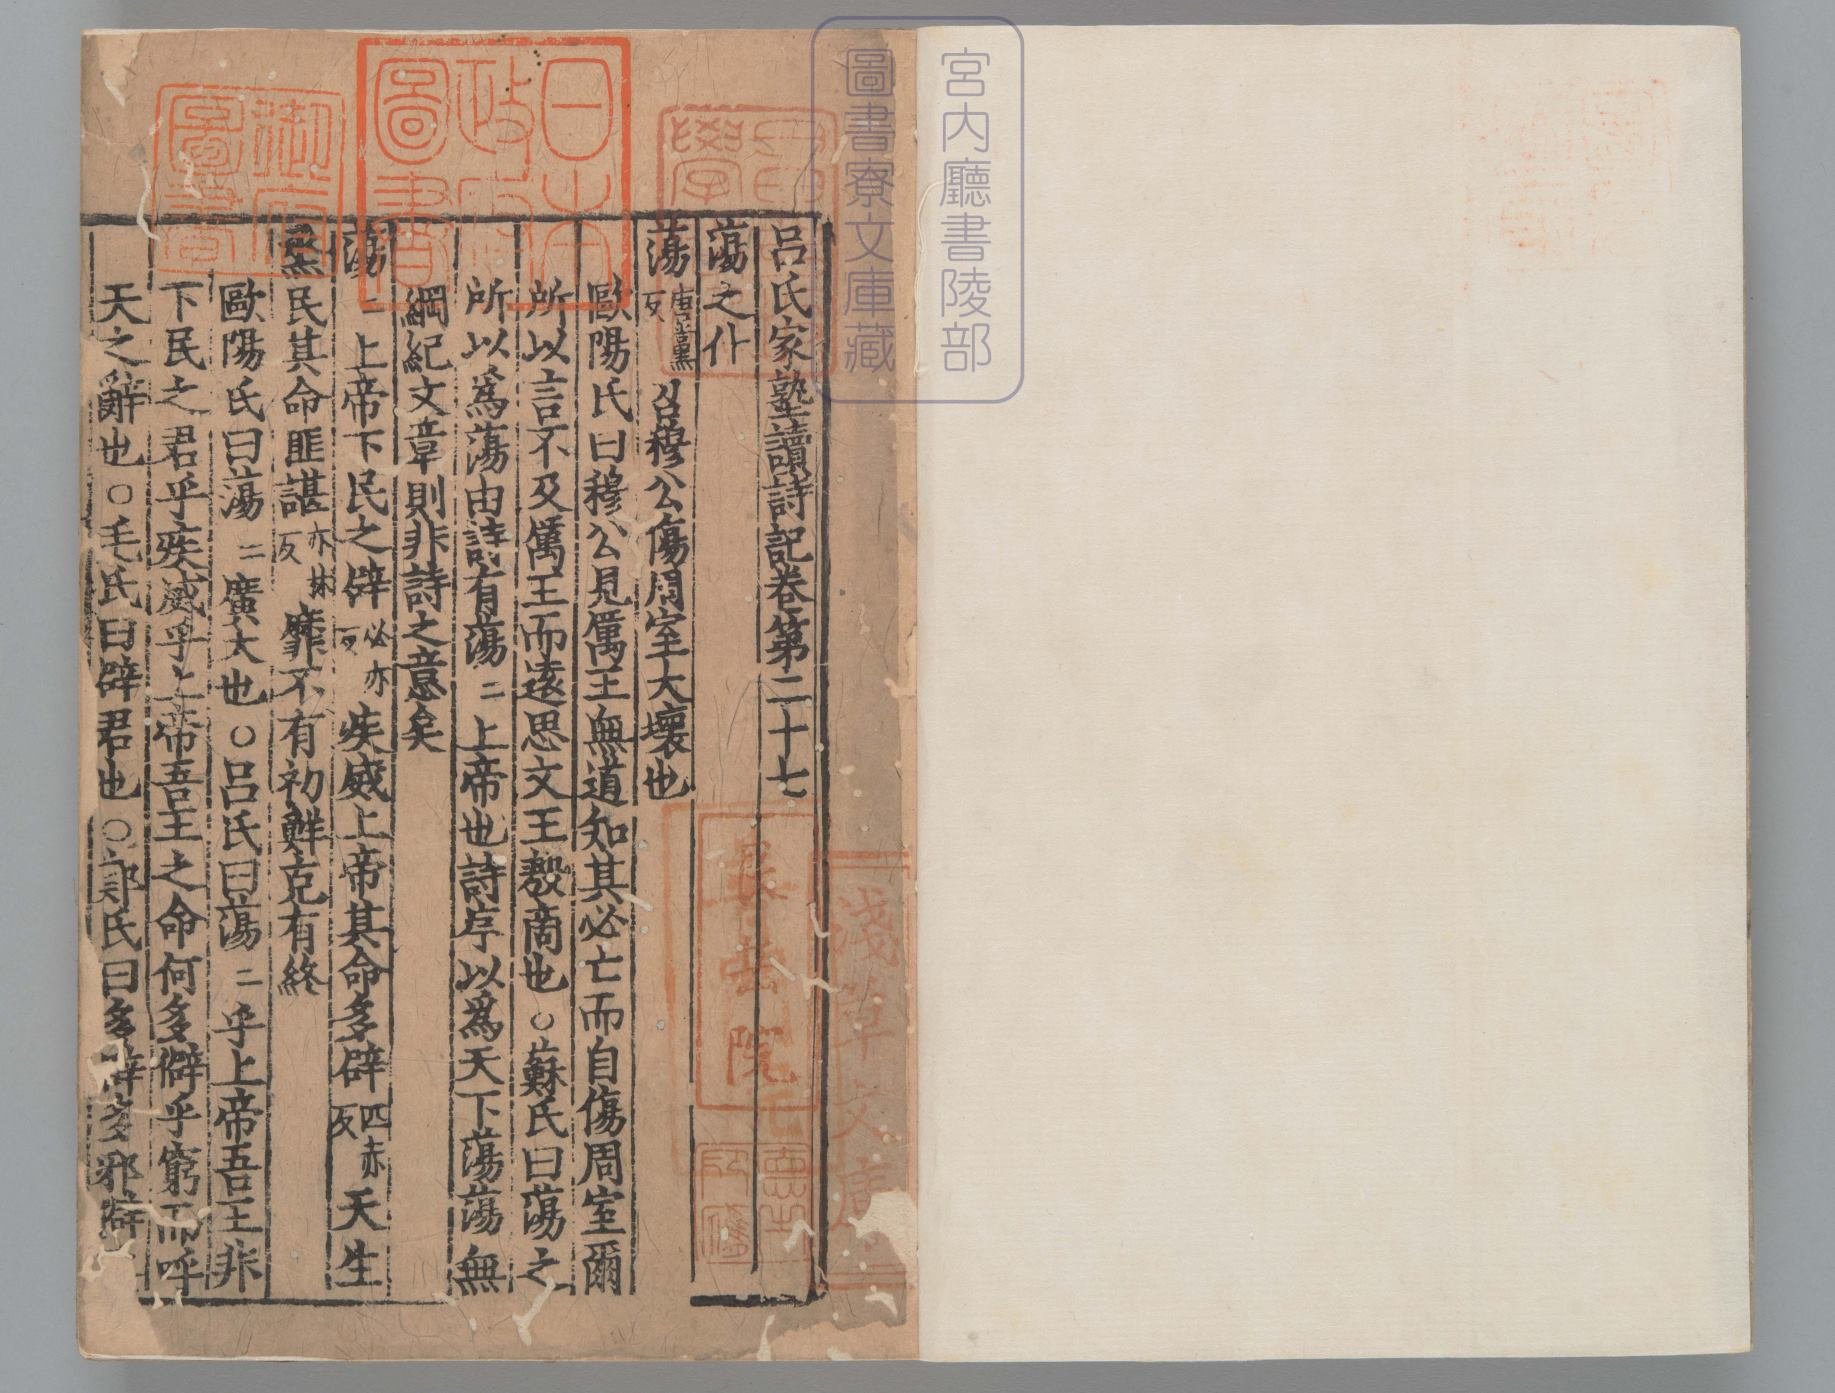 宮内廳書陵部
圖書寮文庫藏
呂氏家塾讀詩記卷第二十七
蕩之什
蕩唐黨反召穆公傷周室大壞也
歐陽氏曰穆公見厲王無道知其必亡而自傷周室爾
所以言不及厲王而遠思文王殷商也○蘇氏曰蕩之
所以爲蕩由詩有蕩二上帝也詩序以爲天下蕩蕩無
綱紀文章則非詩之意矣
蕩二上帝下民之辟必亦反疾威上帝其命多辟四赤反天生
烝民其命匪諶市林反靡不有初鮮克有終
歐陽氏曰蕩二廣大也○呂氏曰蕩二乎上帝吾王非
下民之君乎疾威乎上帝吾王之命何多僻乎窮而呼
天之辭也○毛氏曰辟君也○鄭氏曰多辟多邪辟
日本政府圖書
淺草文庫